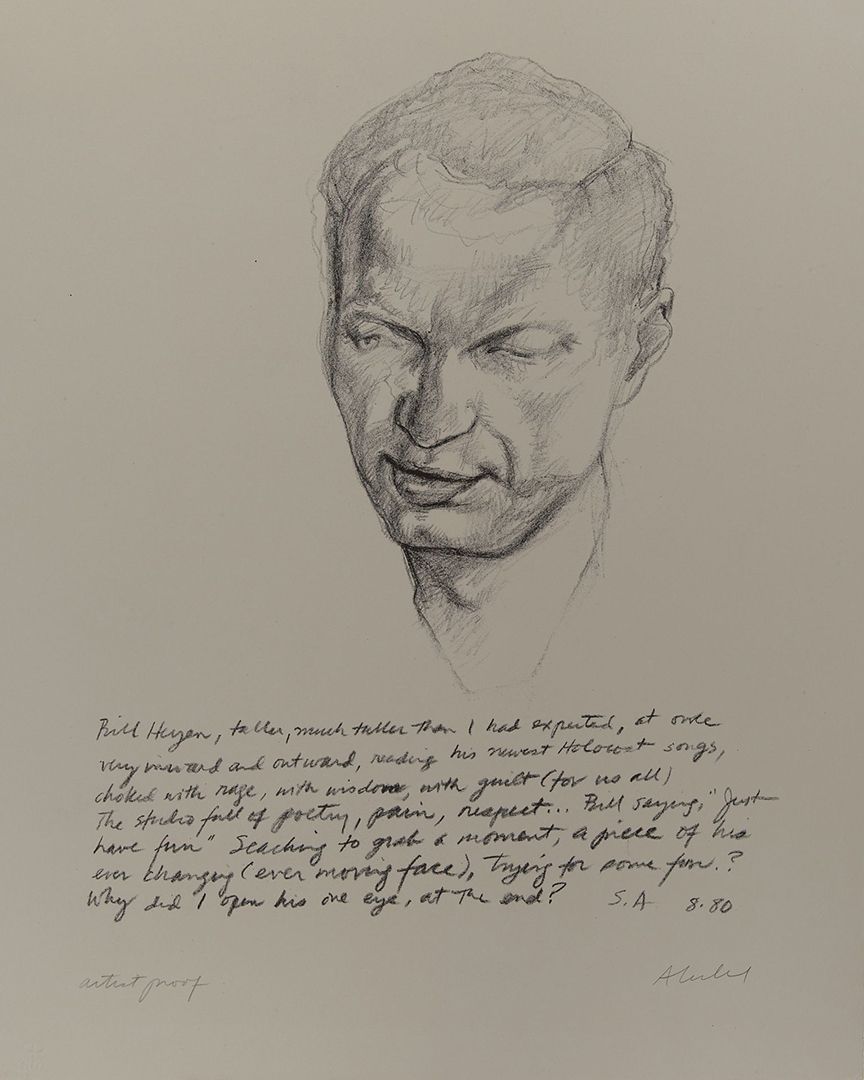 Bill Heyen, taller, much taller than I had expected, at once
very inward and outward, reading his newest Holocost songs,
choked with rage, with wisdom, with guilt (for us all)
The studio full of poetry, pain, respect... Bill saying, "Just
have fun" Seaching to grab a moment, a piece of his
ever changing (ever moving face), Trying for some fun.?
Why did I open his one eye, at The end? S.A 8.80
artist proof